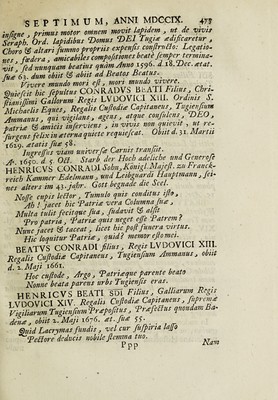 SEPTIMUM, ANNI MDCCIX. 473
insigne, primus motor omnem movit lapidem, ut de vivis
Seraph. Ord. lapidibus Domus DEI Tugiæ ædificaretur,
Choro & altari summo propriis expensis constructo: Legatio-
nes, fœdera, amicabiles compositiones beatè semper termina-
vit, sed nunquam beatius quàm Anno 1596. d. 18. Dec. ætat.
suæ 63. dum obiit & abiit ad Beatos Beatus.
Vivere mundo mori est, mori mundo vivere.
Quiescit hîc sepultus CONRADUS BEATI Filius, Chri-
stianissimi Galliarum Regis LUDOVICI XIII. Ordinis S.
Michaëlis Eques, Regalis Custodiæ Capitaneus, Tugiensium
Ammanus, qui vigilans, agens, atque consulens, DEO,
patriæ & amicis inserviens, in vivis non quievit, ut re-
surgens felix in æterna quiete requiescat. Obiit d. 31. Martii
1629. ætatis suæ 58.
Ingressus viam universæ Carnis transiit.
Aº. 1650. d. 5. Oct. Starb der Hoch adeliche und Generose
HENRICUS CONRADI Sohn, Königl. Majest. zu Franck-
reich Kammer Edelmann, und Leibguardi Hauptmann, sei-
nes alters im 43. jahr. Gott begnade die Seel.
Nosse cupis lector, Tumulo quis conditus isto,
Ah! jacet hic Patriæ vera Columna suæ,
Multa tulit fecitque sua, sudavit & alsit
Pro patria, Patriæ quis neget esse Patrem?
Nunc jacet & taceat, licet hic post funera virtus.
Hic loquitur Patriæ, quid? memor esto mei.
BEATUS CONRADI filius, Regis LUDOVICI XIII.
Regalis Custodiæ Capitaneus, Tugiensium Ammanus, obiit
d. 2. Maji 1661.
Hoc custode, Argo, Patriæque parente beato
Nonne beata parens urbs Tugiensis eras.
HENRICUS BEATI SDI Filius, Galliarum Regis
LVDOVICI XIV. Regalis Custodiæ Capitaneus, supremæ
Vigiliarum Tugiensium Præpositus, Præfectus quondam Ba-
denæ, obiit 2. Maji 1676. æt. suæ 55.
Quid Lacrymas fundis, vel cur suspiria lasso
Pectore deducis nobile stemma tuo.
Ppp Nam